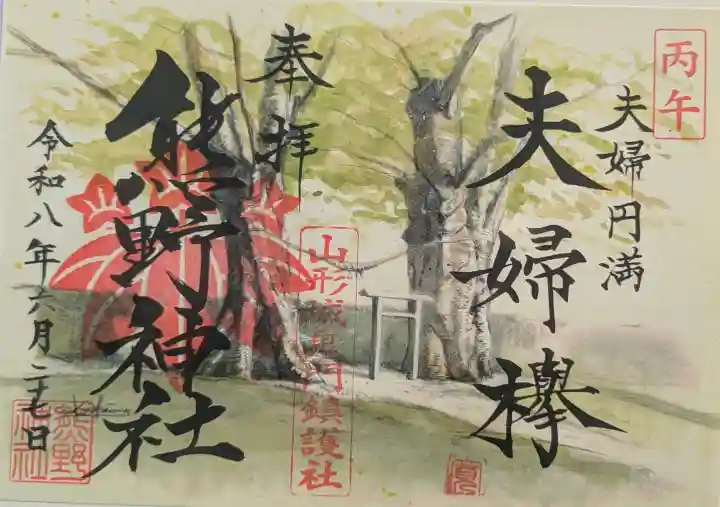 丙午
夫婦円満
夫婦欅
奉拝
山形城鬼門鎮護社
熊野神社
令和八年六月二十七日
熊野神社